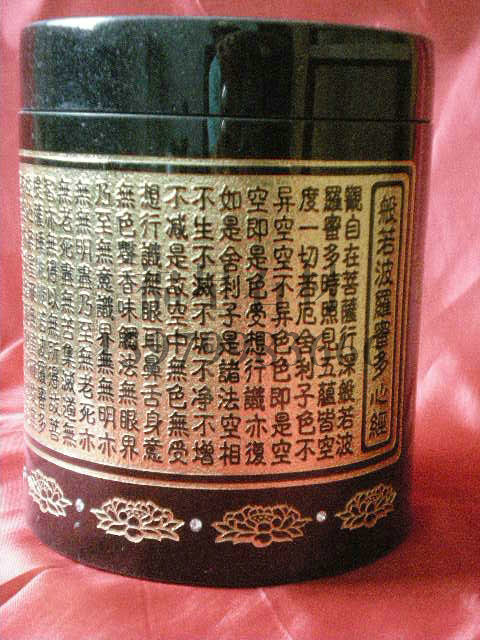 般若波羅蜜多心經
觀自在菩薩行深般若波
羅蜜多時照見五蘊皆空
度一切苦厄舍利子色不
异空空不异色色即是空
空即是色受想行識亦復
如是舍利子是諸法空相
不生不滅不垢不净不增
不减是故空中無色無受
想行識無眼耳鼻舌身意
無色聲香味觸法無眼界
乃至無意識界無無明亦
無無明盡乃至無老死亦
無老死盡無苦集滅道無
亦無得以無所得故菩